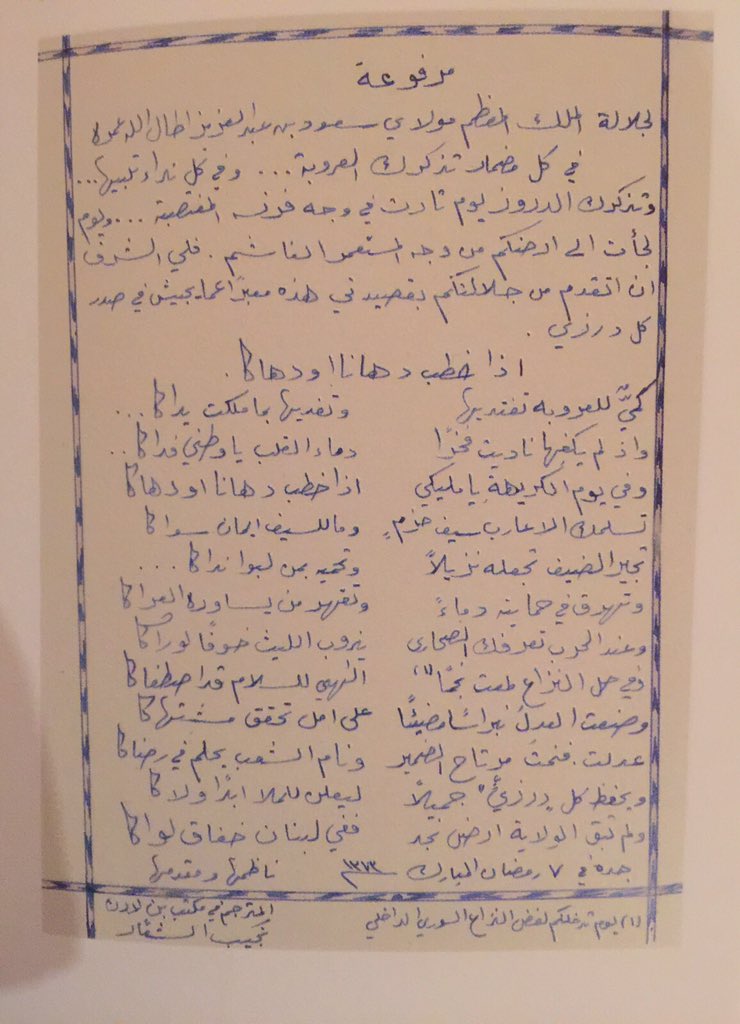 مرفوعة
لجلالة الملك المعظم مولاي سعود بن عبد العزيز اطال الله عمره
في كل مضمار تذكرك العروبة ... وفي كل نداء تلبيها ...
وتذكرك الدروز يوم ثارت في وجه فرنسه المغتصبة ... ويوم
لجأت الى ارضكم من وجه المستعمر الغاشم . فلي الشرف
ان اتقدم من جلالتكم بقصيدتي هذه معبرًا عما يجيش في صدر
كل درزي .
اذا خطب دهانا او دهاكا .
كميٌّ للعروبه تفتديها وتفديها بما ملكت يداكا ...
واذ لم يكفها ناديت فخرًا دماء القلب يا وطني فداكا ..
وفي يوم الكريهة يا مليكي اذا خطب دهانا او دهاكا
تسلمك الاعارب سيف حزمٍ وما للسيف ايمان سواكا
تجير الضيف تجعله نزيلاً وتحميه بمن لبوا نداكا ...
وتهرق في حمايته دماءً وتقهر من يساوره العداكا
وعند الحرب تعرفك الصحارى يذوب الليث خوفًا لو رآكا
وفي حل النزاع لمعت نجمًا (١) الهي للسلام قد اصطفاكا
وضعت العدل نبراسًا مضيئًا على امل تحقق مشتهاكا
عدلت . فنمت مرتاح الضمير ونام الشعب يحلم في رضاكا
ويحفظ كل "درزيٍّ" جميلاً ليعلن للملا ابدًا ولاكا
ولم تبق الولاية ارض نجد ففي لبنان خفاق لواكا
جده في ٧ رمضان المبارك ١٣٧٣ ناظمها ومقدمها
(١) يوم تدخلكم لفض النزاع السوري الداخلي المترجم في مكتب بن لادن
نجيب